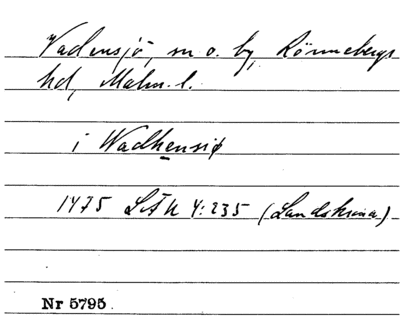 Wadensjö, sn o. by, Rönnebergs
hd, Malm. l.
i Wadhensiø
1475 LÅU 4:235 (Landskrona)
Nr 5795.